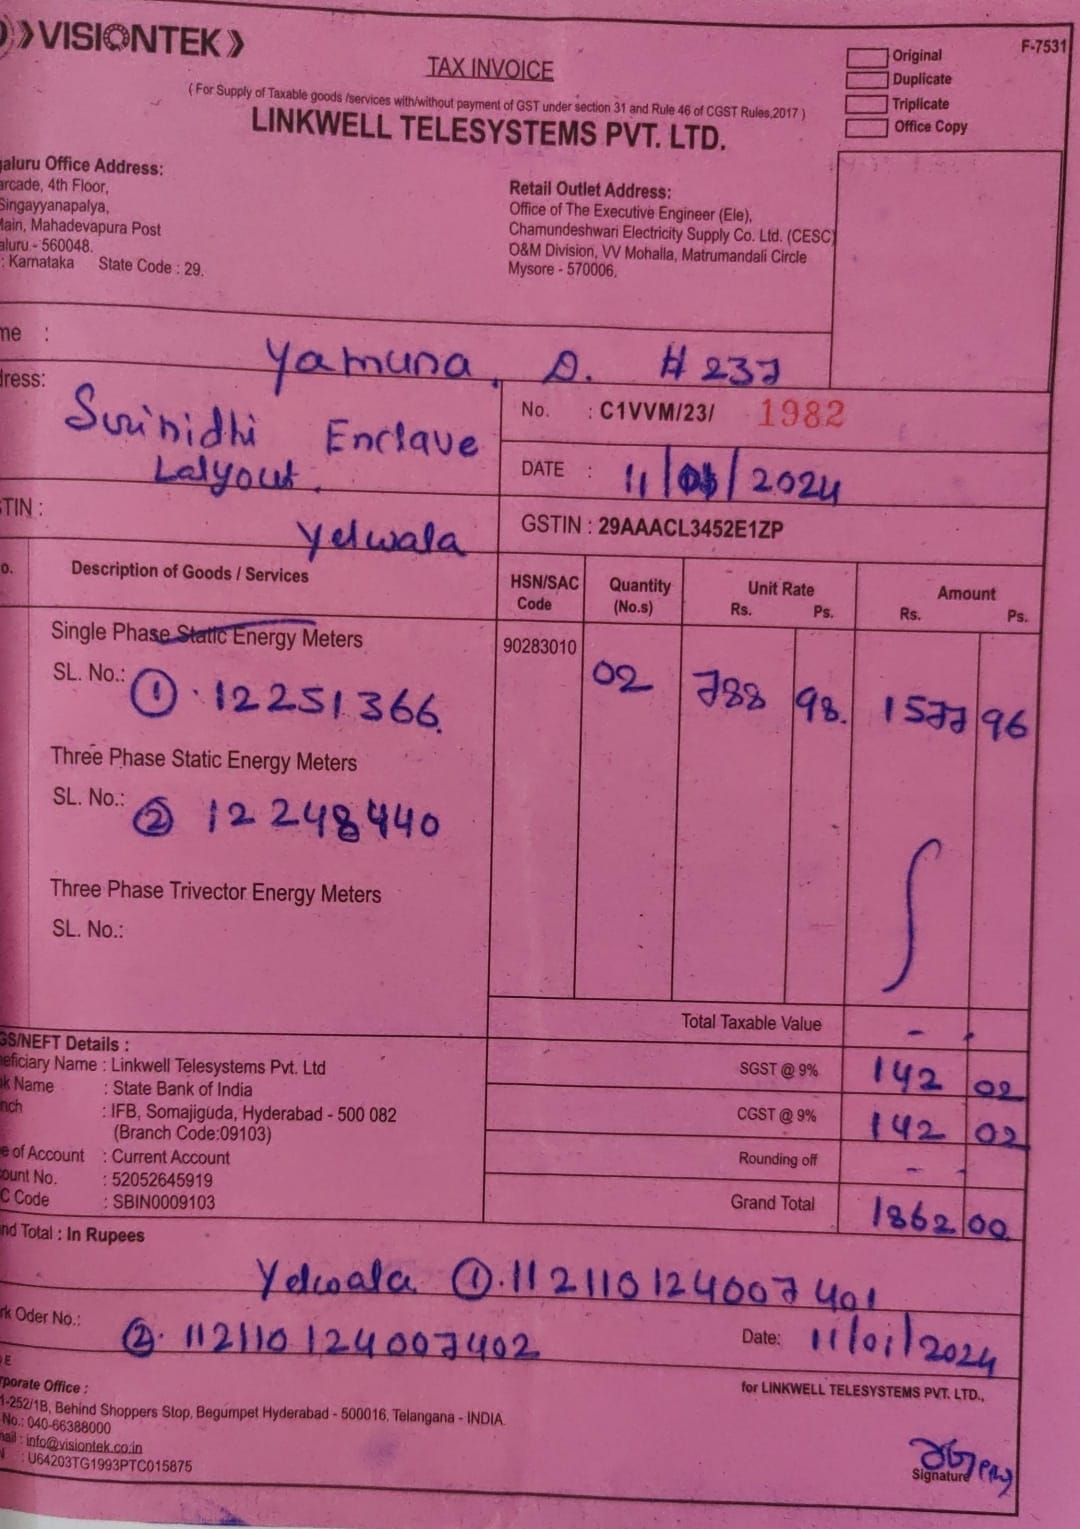 VISIONTEK
F-7531
TAX INVOICE
Original
Duplicate
Triplicate
Office Copy
( For Supply of Taxable goods /services with/without payment of GST under section 31 and Rule 46 of CGST Rules,2017 )
LINKWELL TELESYSTEMS PVT. LTD.
Office Address:
4th Floor,
Singayyanapalya,
Mahadevapura Post
- 560048.
: Karnataka State Code : 29.
Retail Outlet Address:
Office of The Executive Engineer (Ele),
Chamundeshwari Electricity Supply Co. Ltd. (CESC)
O&M Division, VV Mohalla, Matrumandali Circle
Mysore - 570006.
: Yamuna. D. # 237
Enclave
No. : C1VVM/23/ 1982
DATE : 11/01/2024
GSTIN : 29AAACL3452E1ZP
Yelwala
Description of Goods / Services
HSN/SAC Code
Quantity (No.s)
Unit Rate Rs. Ps.
Amount Rs. Ps.
Single Phase Static Energy Meters
90283010 02 788 98. 1577 96
SL. No.: ① . 12251366.
Three Phase Static Energy Meters
SL. No.: ② 12248440
Three Phase Trivector Energy Meters
SL. No.:
Total Taxable Value - .
SGST @ 9% 142 02
CGST @ 9% 142 02
Rounding off - -
Grand Total 1862 00
GS/NEFT Details :
Name : Linkwell Telesystems Pvt. Ltd
Name : State Bank of India
: IFB, Somajiguda, Hyderabad - 500 082
(Branch Code:09103)
of Account : Current Account
No. : 52052645919
C Code : SBIN0009103
Total : In Rupees
Yelwala ①. 112110124007401
Oder No.: ②. 112110124007402
Date: 11/01/2024
for LINKWELL TELESYSTEMS PVT. LTD.,
Office :
1-252/1B, Behind Shoppers Stop, Begumpet Hyderabad - 500016, Telangana - INDIA
No.: 040-66388000
: info@visiontek.co.in
: U64203TG1993PTC015875
Signature